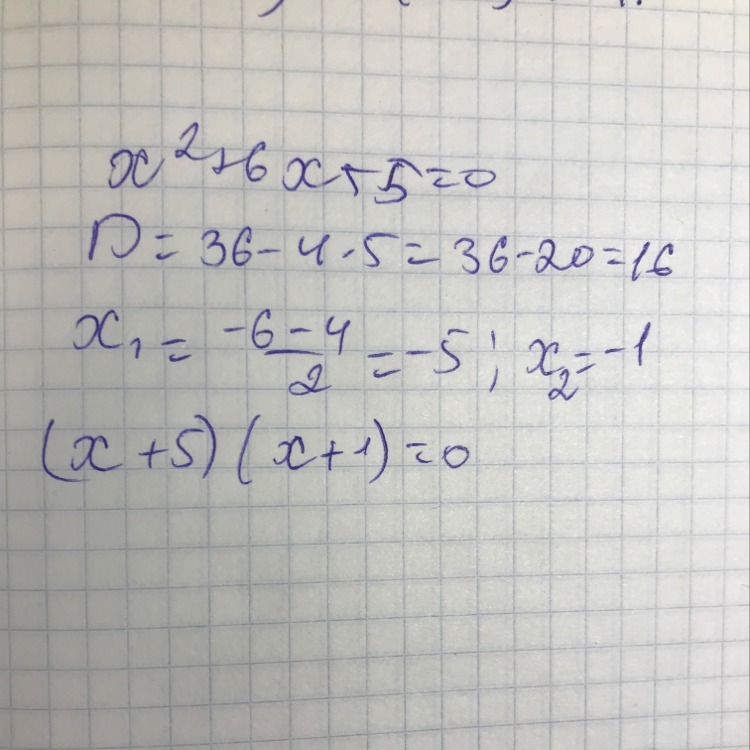 x²+6x+5=0
D=36-4·5=36-20=16
x₁=(-6-4)/2=-5; x₂=-1
(x+5)(x+1)=0